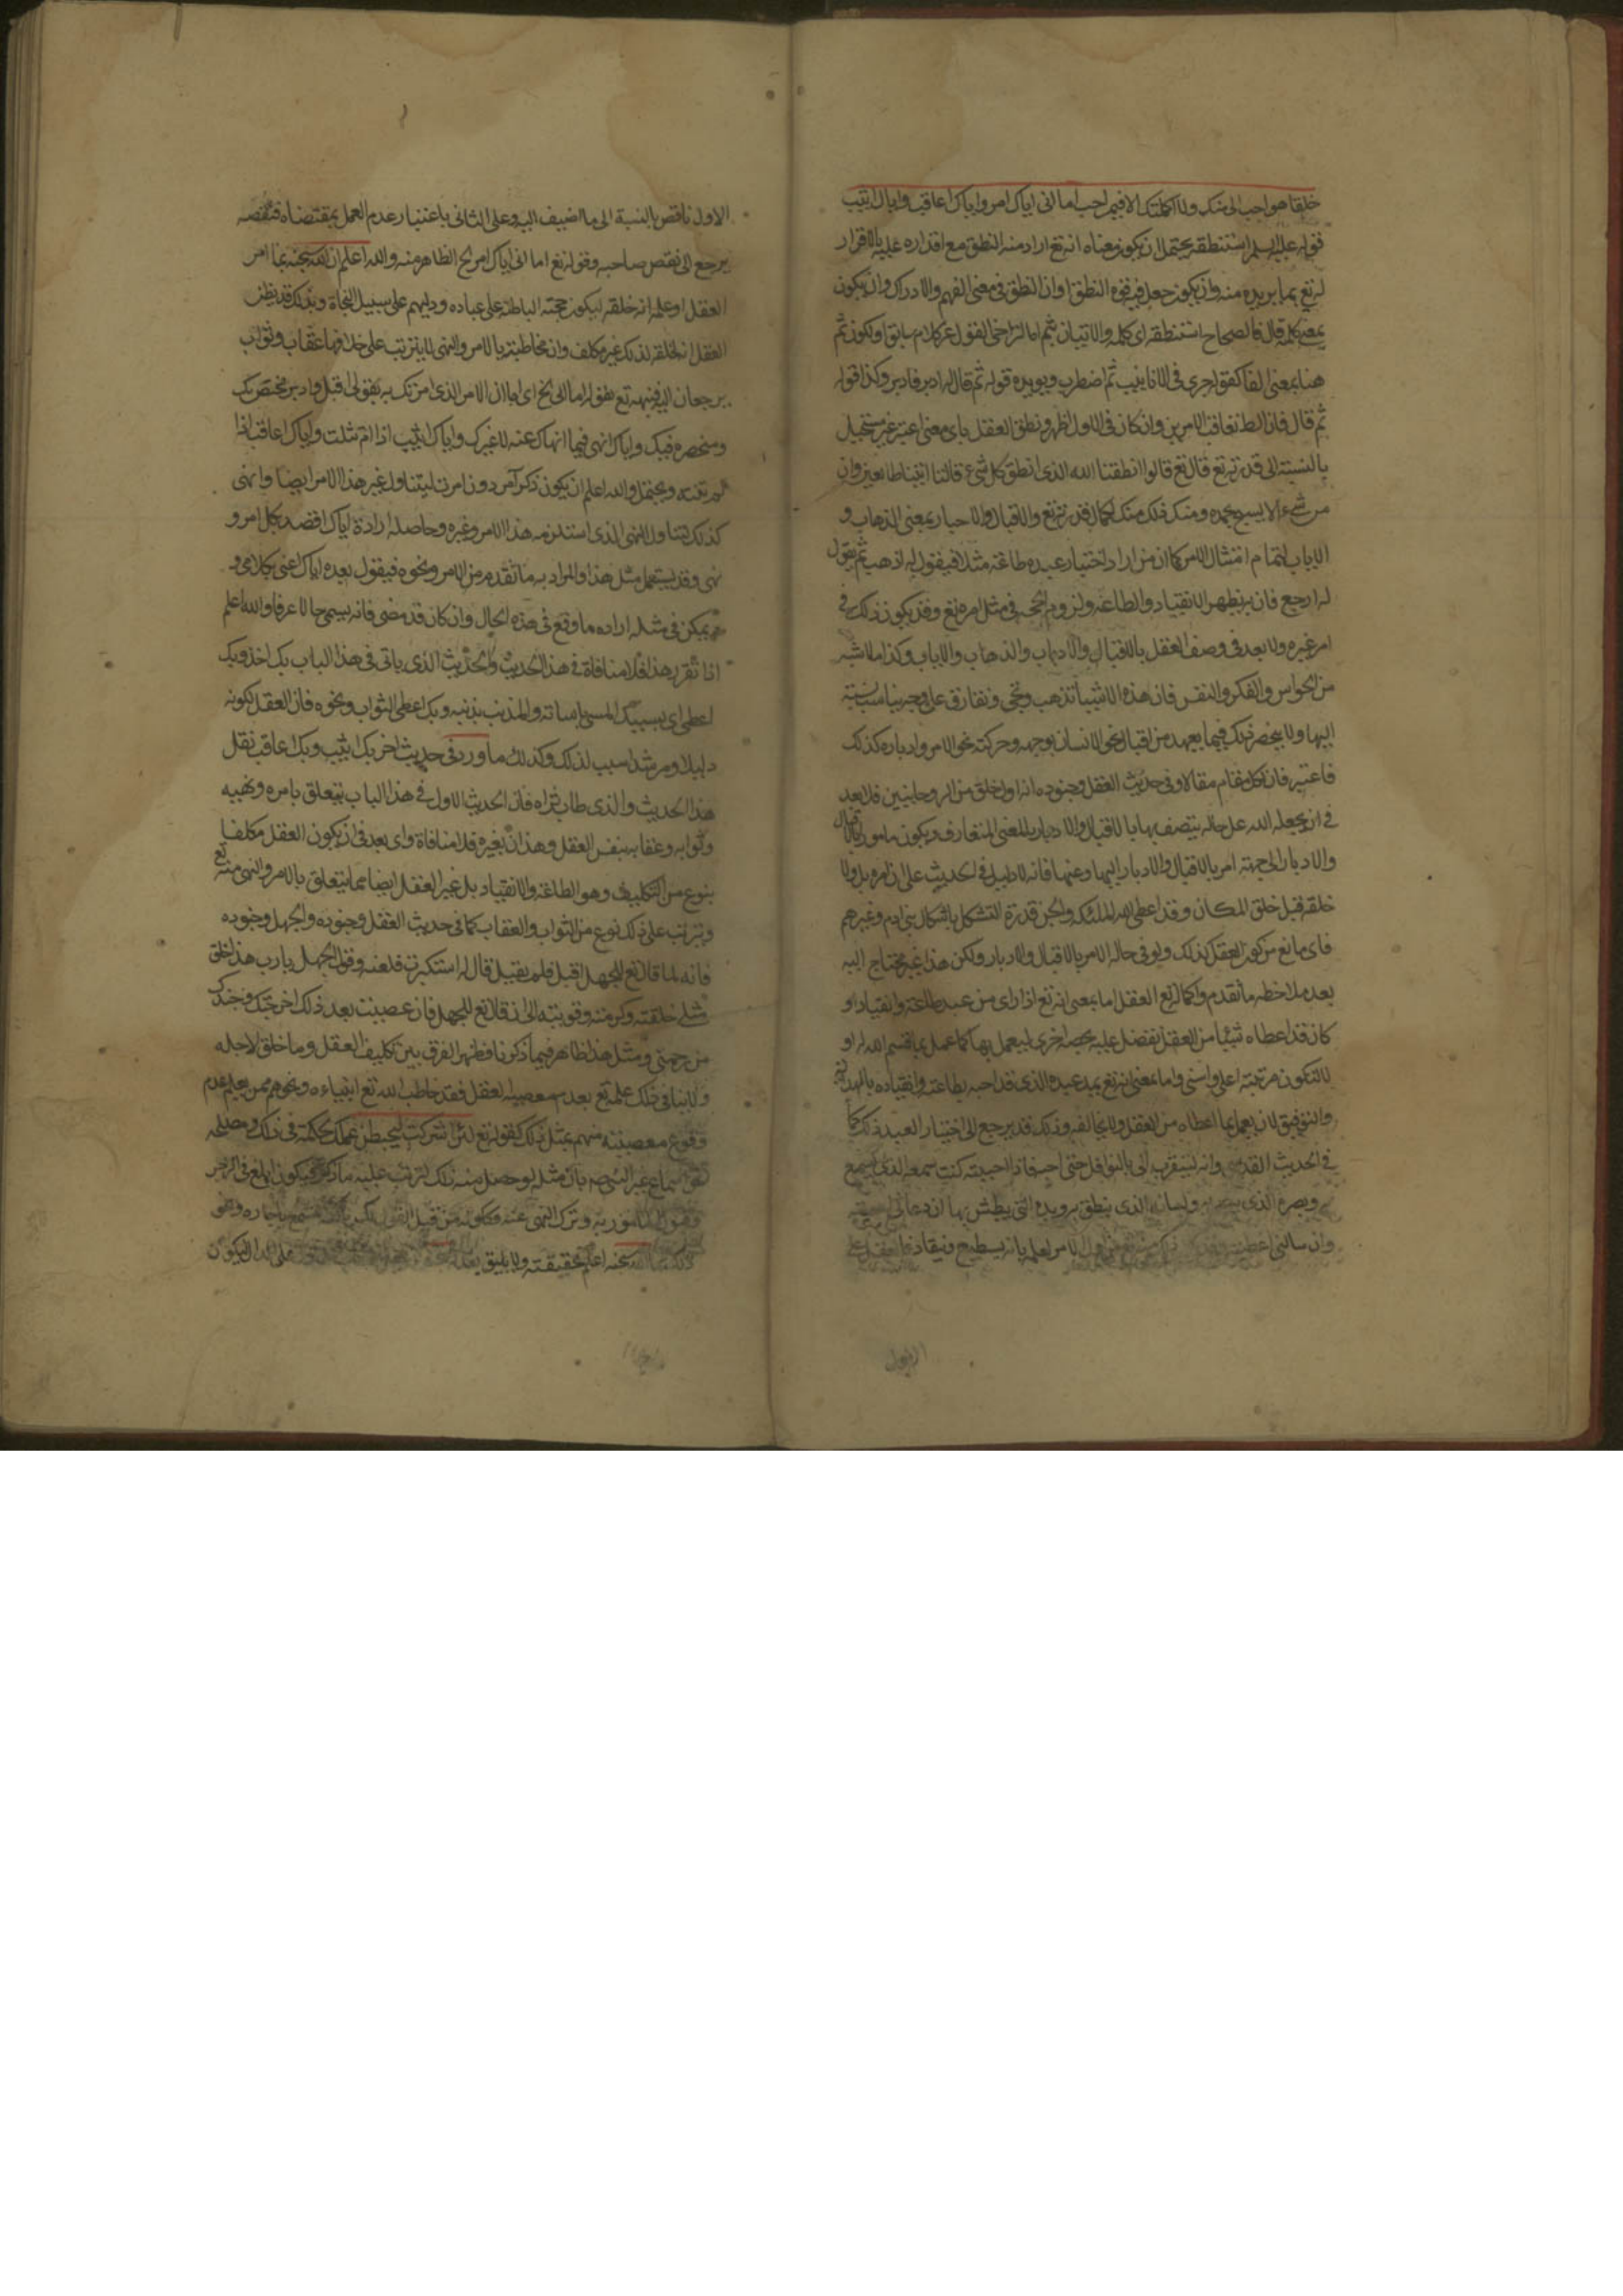 خلقا هو احب الى منك ولا اكملتك الا فيمن احب اما انى اياك امر واياك اعاقب واياك اثيب
قوله عليه السلم استنطقه يحتمل ان يكون معناه انه تع اراد منه النطق مع اقداره عليه بالاقرار
له تع بما يريده منه وان يكون جعل فيه قوة النطق او ان النطق فى معنى الفهم والادراك وان يكون
بمعنى كلمه قال فى الصحاح استنطقه اى كلمه والاتيان بثم اما لتراخى القول عن كلام سابق او لكون ثم
هنا بمعنى الفا كقوله جرى فى الانابيب ثم اضطرب ويويده قوله ثم قال له ادبر فادبر وكذا قوله
ثم قال فان الظ تعاقب الامرين وان كان فى الاول اظهر ونطق العقل باى معنى اعتبر غير مستحيل
بالنسبة الى قدرته تع قال تع قالوا انطقنا الله الذى انطق كل شىء قالتا اتينا طائعين وان
من شىء الا يسبح بحمده ومنك ذلك منك لكمال قدرته تع والاقبال والادبار بمعنى الذهاب و
الاياب لتمام امتثال الامر كما ان من اراد اختيار عبده طاعته مثلا فيقول له اذهب ثم يقول
له ارجع فان به يظهر الانقياد والطاعة ولزوم الحجه فى مثل امره تع وقد يكون ذلك فى
امر غيره ولا بعد فى وصف العقل بالاقبال والادبار والذهاب والاياب وكذا ما اشبه
من الحواس والفكر والنفس فان هذه الاشياء تذهب وتجى وتفارق على وجه يناسب نسبته
اليها ولا ينحصر ذلك فيما يعهد من اقبال نحو الانسان بوجهه وحركته نحو الامر وادباره كذلك
فاعتبر فان لكل مقام مقالا وفى حديث العقل وجنوده انه اول خلق من الروحانيين فلا بعد
فى ان يجعله الله على حاله يتصف بها بالاقبال والادبار بالمعنى المتعارف ويكون مامورا بالاقبال
والادبار الى جهته امر بالاقبال والادبار اليها وعنها فانه لا دليل فى الحديث على ان امره بل ولا
خلقه قبل خلق المكان وقد اعطى الله الملئكه والجن قدرة التشكل باشكال بنى ادم وغيرهم
فاى مانع من كون العقل كذلك ولو فى حالة الامر بالاقبال والادبار ولكن هذا غير محتاج اليه
بعد ملاحظه ما تقدم واكماله تع العقل اما بمعنى انه تع اذا راى من عبد طاعته وانقيادا و
كان قد اعطاه شيئا من العقل تفضل عليه بحصه اخرى ليعمل بها كما عمل بما قسم الله له او
لتكون مرتبته اعلى واسنى واما بمعنى انه تع يمد عبده الذى قد احبه بطاعته وانقياده بالهداية
والتوفيق لان يعمل بما اعطاه من العقل ولا يخالفه وذلك قد يرجع الى اختيار العبد ذلك كما
فى الحديث القدسى وانه ليتقرب الى بالنوافل حتى احبه فاذا احببته كنت سمعه الذى يسمع
وبصره الذى يبصر به ولسانه الذى ينطق به ويده التى يبطش بها ان دعانى اجبته
وان سالنى اعطيته الامر لعلمه بانه يسطيع وينقاد العقل على
الاول ناقص بالنسبة الى ما اضيف اليه وعلى الثانى باعتبار عدم العمل بمقتضاه فنقصه
يرجع الى نقص صاحبه وقوله تع اما انى اياك امر الخ الظاهر منه والله اعلم ان الله سبحنه بما امر
العقل او علمه انه خلقه ليكون حجته الباطنة على عباده ودليلهم على سبيل النجاة وبذلك قد يظن
العقل ان خلقه لذلك غير مكلف وان مخاطبته بالامر والنهى لا يترتب على خلافها عقاب وثواب
يرجعان اليه فنبهه تع بقوله اما انى الخ اى اما ان الامر الذى امرتك به بقولى اقبل وادبر مختص بك
ومنحصر فيك واياك انهى فيما انهاك عنه لا غيرك واياك اثيب اذا امتثلت واياك اعاقب اذا
لم تنته ويحتمل والله اعلم ان يكون ذكر آمر دون امرت ليتناول غير هذا الامر ايضا وانهى
كذلك لتناول النهى الذى استلزمه هذا الامر وغيره وحاصله ارادة اياك اقصد بكل امر و
نهى وقد يستعمل مثل هذا والمراد به ما تقدم من الامر ونحوه فيقول بعده اياك اعنى بكلامى و
يمكن فى مثله اراده ما وقع فى هذه الحال وان كان قد مضى فانه يسمى حالا عرفا والله اعلم
اذا تقرر هذا فلا منافاة فى هذا الحديث والحديث الذى ياتى فى هذا الباب بك اخذ وبك
اعطى اى بسببك المسى باساته والمذنب بذنبه وبك اعطى الثواب ونحوه فان العقل لكونه
دليلا ومرشدا سبب لذلك وكذلك ما ورد فى حديث اخر بك اثيب وبك اعاقب نقل
هذا الحديث والدى طاب ثراه فان الحديث الاول فى هذا الباب يتعلق بامره ونهيه
وثوابه وعقابه بنفس العقل وهذان بغيره فلا منافاة واى بعد فى ان يكون العقل مكلفا
بنوع من التكليف وهو الطاعة والانقياد بل غير العقل ايضا مما يتعلق بالامر والنهى منه تع
ويترتب على ذلك نوع من الثواب والعقاب كما فى حديث العقل وجنوده والجهل وجنوده
فانه لما قال تع للجهل اقبل فلم يقبل قال له استكبرت فلعنه وقول الجهل يا رب هذا خلق
مثلى خلقته وكرمته وقويته الى ان قال تع للجهل فان عصيت بعد ذلك اخرجتك وجندك
من رحمتى ومثل هذا ظاهر فيما ذكرنا فظهر الفرق بين تكليف العقل وما خلق لاجله
ولا ينافى ذلك علمه تع بعدم معصيه العقل فقد خاطب الله تع انبياءه ونحوهم ممن يعلم عدم
وقوع معصيته منهم بمثل ذلك كقوله تع لئن اشركت ليحبطن عملك لحكمة فى ذلك ومصلحه
نحو سماع غير النبى ص بان مثله لو حصل منه ذلك لترتب عليه ما ذكر فيكون ابلغ فى الزجر
المامور به وترك المنهى عنه وكونه من قبيل القول
سبحنه اعلم بحقيقته ولا يليق على هذا ان يكون